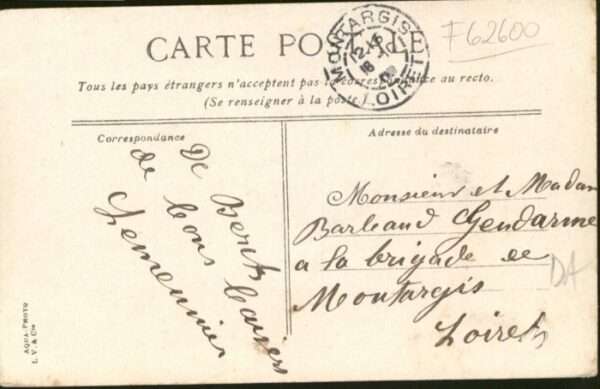 F62600
CARTE POSTALE
MONTARGIS
LOIRET
Tous les pays étrangers n'acceptent pas la correspondance au recto.
(Se renseigner à la poste)
Correspondance
De
de bons baisers
Lemeunier
Adresse du destinataire
Monsieur et Madam
Barbaud Gendarme
a la brigade de
Montargis
Loiret
DA
AQUA-PHOTO
L. V. & Cie